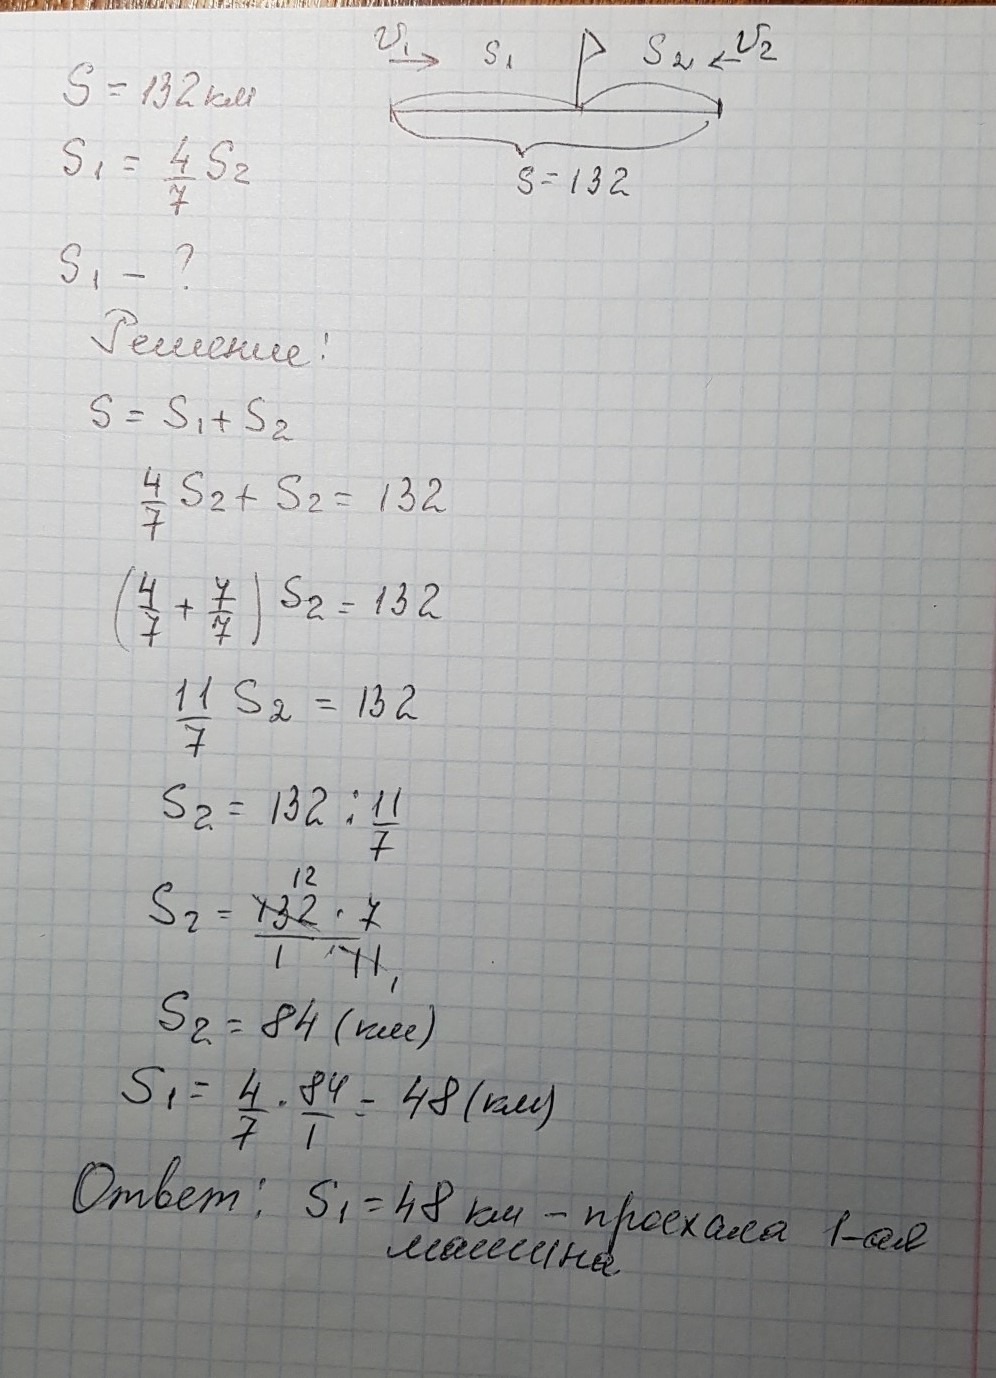 V₁ → S₁ S₂ ← V₂
S = 132 км
S₁ = 4/7 S₂
S = 132
S₁ – ?
Решение:
S = S₁ + S₂
4/7 S₂ + S₂ = 132
(4/7 + 7/7) S₂ = 132
11/7 S₂ = 132
S₂ = 132 : 11/7
12
S₂ = 132 · 7
1 11 1
S₂ = 84 (км)
S₁ = 4/7 · 84/1 = 48 (км)
Ответ: S₁ = 48 км – проехала 1-ая
машина